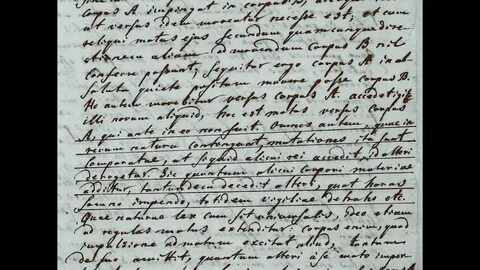 corpus A impingat in corpus B,
at versus idem moveatur necesse est, et cum
reliqui motus ejus secundum quamcunque dire-
ctionem alium ad movendum corpus B nil
conferre possunt, sequitur ergo corpus A in ab-
soluta quiete positum movere posse corpus B.
Hoc autem movebitur versus corpus A. accedet igitur
illi novum aliquid, hoc est motus versus corpus
A, qui ante in eo non fuit. Omnes autem, quae in
rerum natura contingunt, mutationes ita sunt
comparatae, ut si quid alicui rei accedit, id alteri
derogetur. Sic quantum alicui corpori materiae
additur, tantundem decedit alteri, quot horas
somno impendo, totidem vigiliae detraho etc.
Quae naturae lex cum sit universalis, ideo etiam
ad regulas motus extenditur: corpus enim, quod
impulsione ad motum excitat aliud, tantum
de suo amittit, quantum alteri a se moto imper-